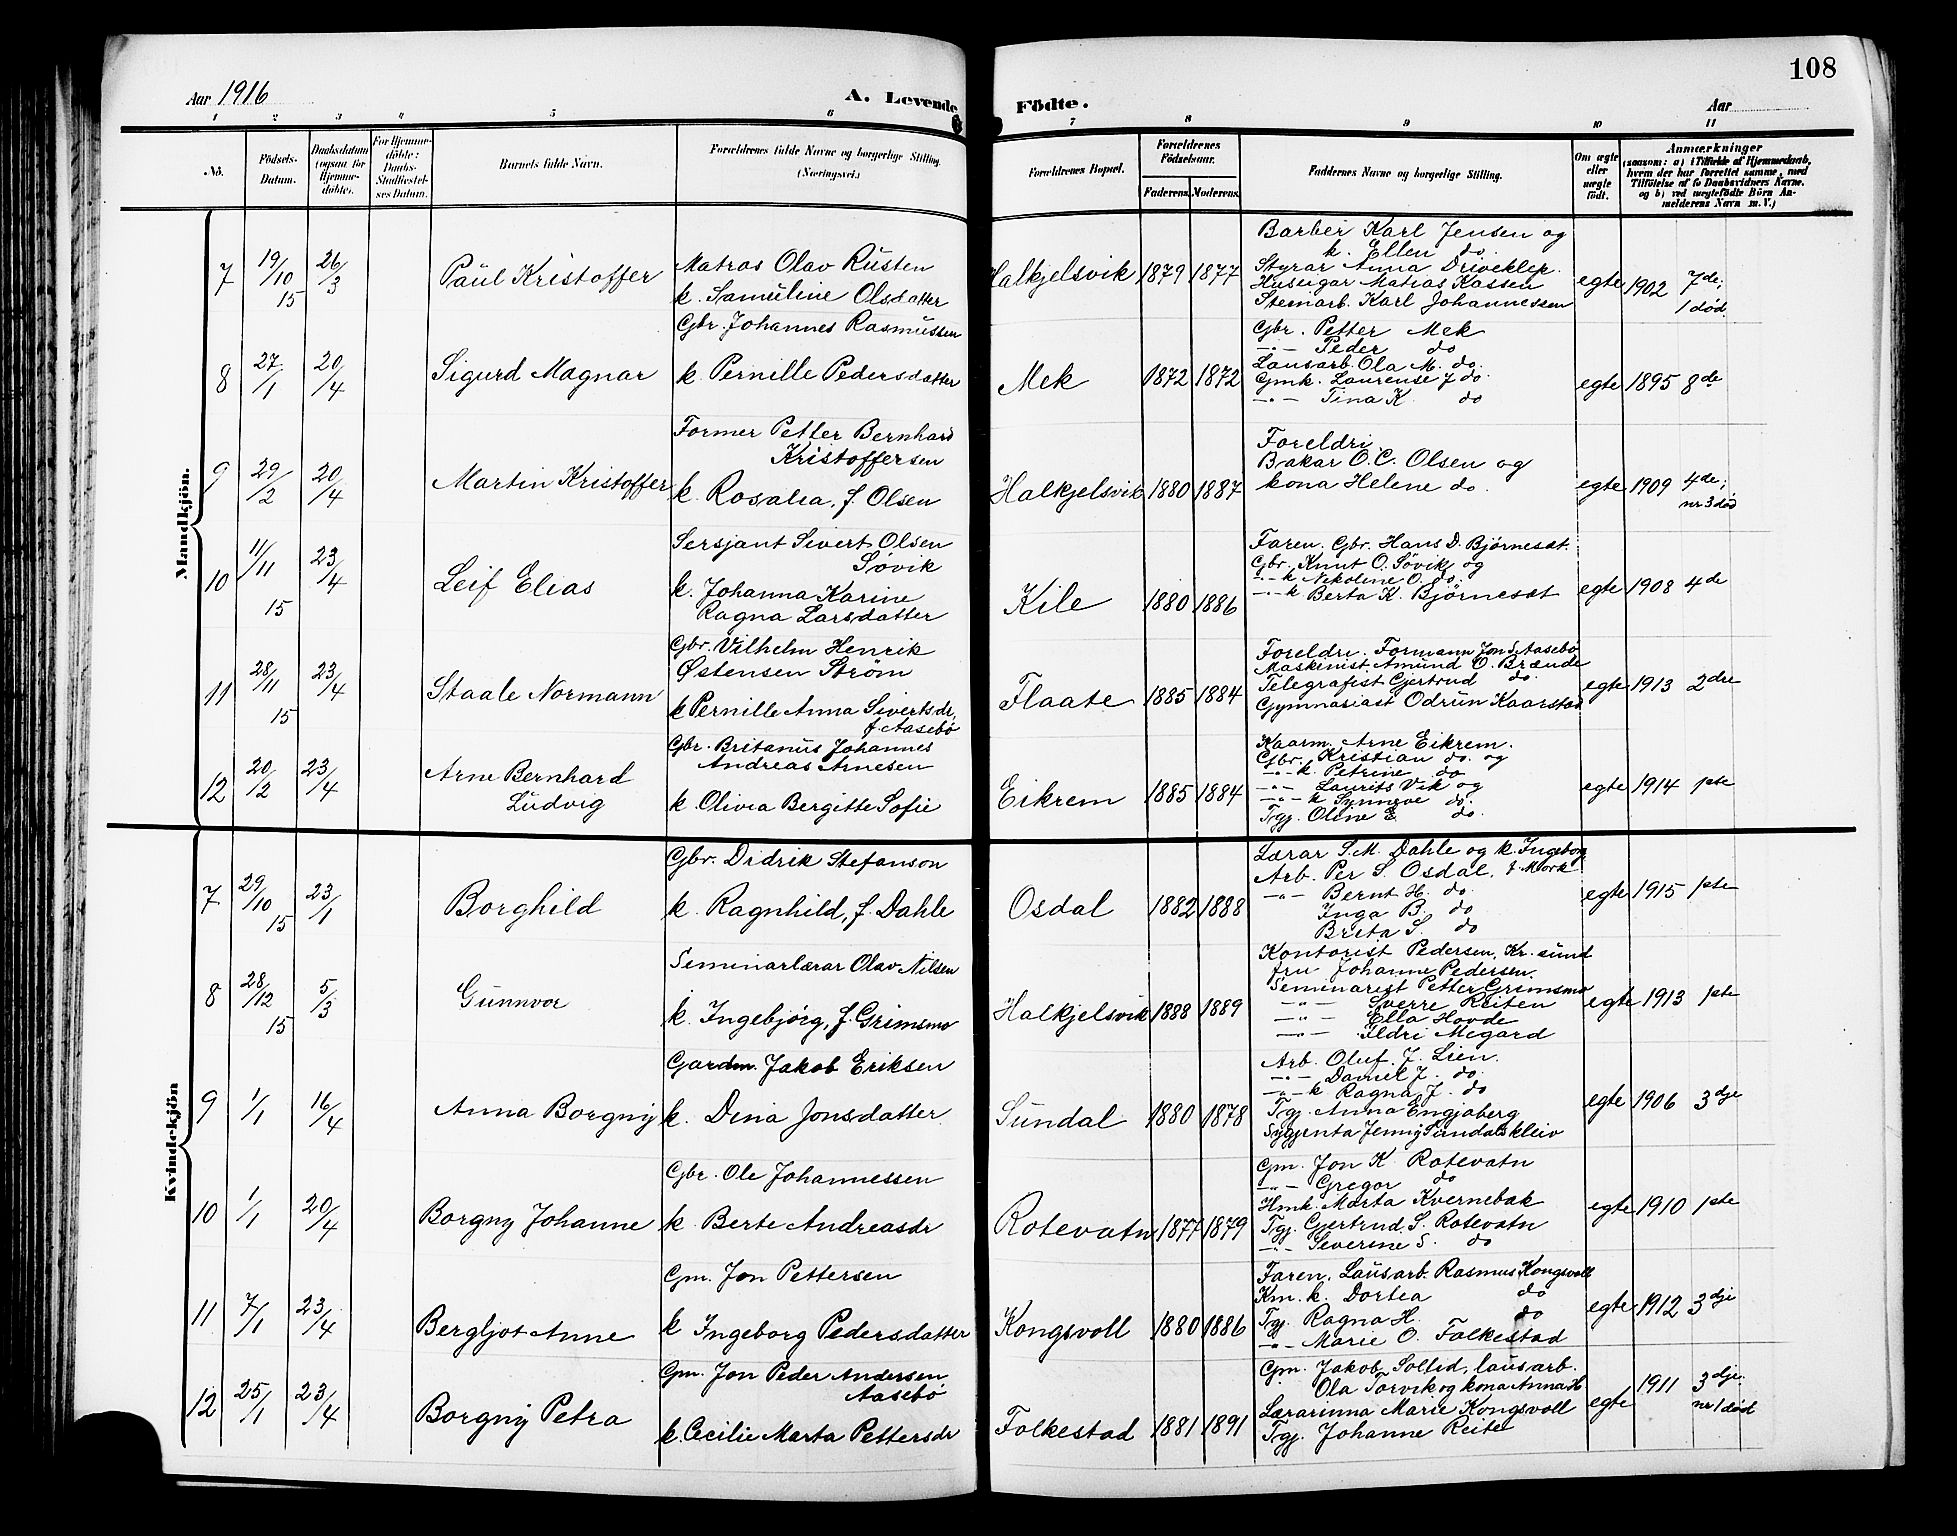 108
Aar 1916
A. Levende
Födte.
Aar
1 2 3 4 5 6 7 8 9 10 11
No.
Födsels-
Datum.
Daabsdatum
(ogsaa for
Hjemme-
döbte).
For Hjemme-
döbte:
Daabs-
Stadfæstel-
ses Datum.
Barnets fulde Navn.
Forældrenes fulde Navne og borgerlige Stilling.
(Næringsvei.)
Forældrenes Bopæl.
Forældrenes
Födselsaar.
Faderens.
Moderens.
Faddernes Navne og borgerlige Stilling.
Om ægte
eller
uægte
födt.
Anmærkninger
(saasom: a) i Tilfælde af Hjemmedaab,
hvem der har forrettet samme, med
Tilföielse af to Daabsvidners Navne.
og b) ved uægtefödte Börn An-
melderens Navn m. V.)
Mandkjön.
7
19/10 15
26/3
Paul Kristoffer
Matros Olav Rusten
k. Samuline Olsdatter
Halkjelsvik
1879
1877
Barber Karl Jensen og
k. Ellen do.
Styrar Anna Driveklep.
Huseigar Matias Kassen
Steinarb. Karl Johannessen
egte
1902
7de;
1 død.
8
27/1
20/4
Sigurd Magnar
Gbr. Johannes Rasmussen
k. Pernille Pedersdatter
Mek
1872
1872
Gbr. Petter Mek
-"- Peder do
Lausarb. Ola M. do.
Gmk. Laurense J do.
-"- Tina K do
egte
1895
8de
9
29/2
20/4
Martin Kristoffer
Former Petter Bernhard
Kristoffersen
k. Rosalia, f. Olsen
Halkjelsvik
1880
1887
Foreldri
Bakar O.C. Olsen og
kona Helene do.
egte
1909
4de;
nr 3 død
10
11/11 15
23/4
Leif Elias
Sersjant Sivert Olsen
Søvik
k. Johanna Karine
Ragna Larsdatter
Kile
1880
1886
Faren. Gbr. Hans D. Bjørneset.
Gbr. Knut O. Søvik og
-"- k Nikoline O. do.
-"- k Berta K. Bjørneset
egte
1908
4de
11
28/11 15
23/4
Staale Normann
Gbr. Vilhelm Henrik
Østensen Strøm
k Pernille Anna Sivertsdr,
f. Aasebø
Flaate
1885
1884
Foreldri. Formann Jon S. Aasebø
Maskinist Amund O. Brænde
Telegrafist Gjertrud do.
Gymnasiast Odrun Kaarstad
egte
1913
2dre
12
20/2
23/4
Arne Bernhard
Ludvig
Gbr. Britanus Johannes
Andreas Arnesen
k. Olivia Bergitte Sofie
Eikrem
1885
1884
Kaarm. Arne Eikrem.
Gbr. Kristian do. og
-"- k. Petrine do
-"- Laurits Vik og
-"- k Synnøve do.
Tgj. Oline E. do.
egte
1914
1ste
Kvindekjön
7
29/10 15
23/1
Borghild
Gbr. Didrik Stefanson
k. Ragnhild, f. Dahle
Osdal
1882
1888
Lærar S.M. Dahle og k. Ingeborg
Arb. Per S. Osdal, f. Mork
-"- Bernt H. do.
Inga B. do
Brita S. do
egte
1915
1ste
8
28/12 15
5/3
Gunnvor
Seminarlærar Olav Nilsen
k. Ingebjørg, f. Grimsmo
Halkjelsvik
1888
1889
Kontorist Pedersen, Kr. sund
fru Johanne Pedersen.
Seminarist Petter Grimsmo
-"- Sverre Reiten
-"- Ella Hovde
-"- Ildri Megard
egte
1913
1ste
9
1/1
16/4
Anna Borgny
Gardm. Jakob Eriksen
k. Dina Jonsdatter
Sundal
1880
1878
Arb. Oluf J. Lien.
-"- Daniel J. do.
-"- k Ragna J. do
Tgj. Anna Engjaberg
Sygjenta Jenny Sundalskleiv
egte
1906
3dje
10
1/1
20/4
Borgny Johanne
Gbr. Ole Johannessen
k. Berte Andreasdr
Rotevatn
1877
1879
Gm. Jon K. Rotevatn
-"- Gregor do
Hmk. Marta Kvernebak
Tgj. Gjertrud S. Rotevatn
-"- Severine S. do
egte
1910
1ste
11
7/1
23/4
Bergljot Anne
Gm. Jon Pettersen
k Ingeborg Pedersdatter
Kongsvoll
1880
1886
Faren, Lausarb. Rasmus Kongsvoll
Km. k. Dortea do
Tgj. Ragna H. do
-"- Marie O. Folkestad
egte
1912
3dje
12
25/1
23/4
Borgny Petra
Gm. Jon Peder Andersen
Aasebø
k. Cecilie Marta Pettersdr
Folkestad
1881
1891
Gm. Jakob Soltid, lausarb.
Ola Torvik og kona Anna H
Lærarinna Marie Kongsvoll
Tgj. Johanne Reite
egte
1911
3dje.
nr 1 død